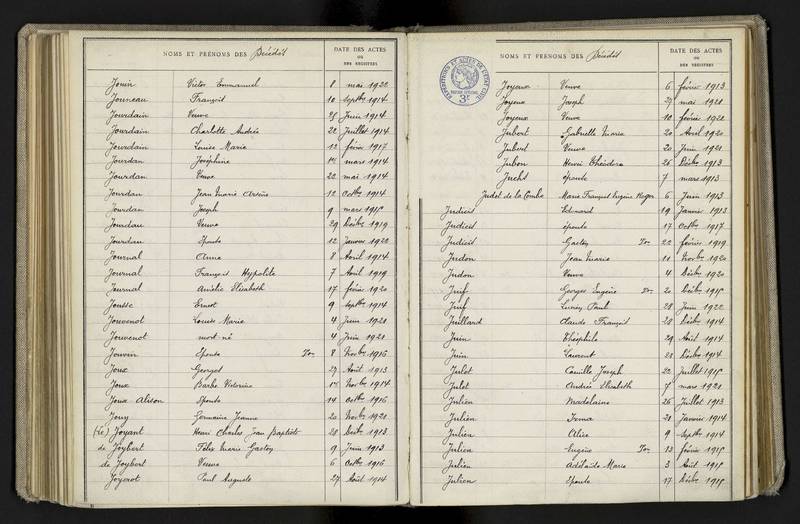 NOMS ET PRÉNOMS DES Décédés
DATE DES ACTES
OU
DES REGISTRES
Jouin Victor Emmanuel 8 mai 1922
Jouneau François 10 Septbre 1914
Jourdain Veuve 25 Juin 1914
Jourdain Charlotte Andrée 22 Juillet 1914
Jourdain Louise Marie 12 février 1917
Jourdan Joséphine mars 1914
Jourdan Veuve 22 mai 1914
Jourdan Jean Marie 12 Octbre 1914
Jourdan Joseph 9 mars 1915
Jourdan Veuve 29 Décbre 1919
Jourdan Epouse 12 Janvier 1922
Journal Anna 8 Avril 1914
Journal François Hyppolite 7 Avril 1919
Journal Elisabeth 17 février 1920
Jousse Ernest 9 Septbre 1914
Jouvenot Louise Marie 4 Juin 1921
Jouvenot mort né 4 Juin 1921
Jouvin Epouse Ton 8 Novbre 1916
Joux Georges 27 Août 1913
Joux Barbe Victorine Novbre 1914
Joux Alison Epouse 14 Octbre 1916
Jouy Germaine Jeanne 20 Novbre 1921
(Le) Joyant Henri Charles Jean Baptiste 28 Décbre 1913
de Joybert Félix Marie Gaston 9 Juin 1913
de Joybert Veuve 6 Octbre 1916
Joyerot Paul Auguste 27 Août 1914
NOMS ET PRÉNOMS DES Décédés
DATE DES ACTES
OU
DES REGISTRES
EXPÉDITIONS ET ACTES DE L'ÉTAT CIVIL
3
Joyeux Veuve 6 février 1913
Joyeux Joseph 29 mai 1921
Joyeux Veuve 10 février 1922
Jubert Gabrielle Maria 20 Avril 1920
Jubert Veuve 20 Juin 1921
Jubon Henri Théodore 26 Décbre 1913
Jucht épouse 7 mars 1913
Judet de la Combe Marie François Eugène Roger 6 Juin 1913
Judicis Edouard 19 Janvier 1913
Judicis épouse 17 Octbre 1917
Judicis Gaston Ton 22 février 1919
Judon Jean Marie 11 Novbre 1920
Judon Veuve 4 Décbre 1920
Juif Georges Eugène Ton 20 Décbre 1915
Juif Lucien Paul 28 Juin 1922
Juillard Claude François 28 Décbre 1914
Juin Théophile 29 Août 1914
Juin Laurent 28 Décbre 1914
Julet Camille Joseph 22 Juillet 1915
Julet Andrée Elisabeth 7 mars 1921
Julien Madeleine 26 Juillet 1913
Julien Irma 21 Janvier 1914
Julien Alice 9 Septbre 1914
Julien Eugène Ton 13 février 1915
Julien Adélaïde Marie 3 Août 1915
Julien Epouse 17 Décbre 1915